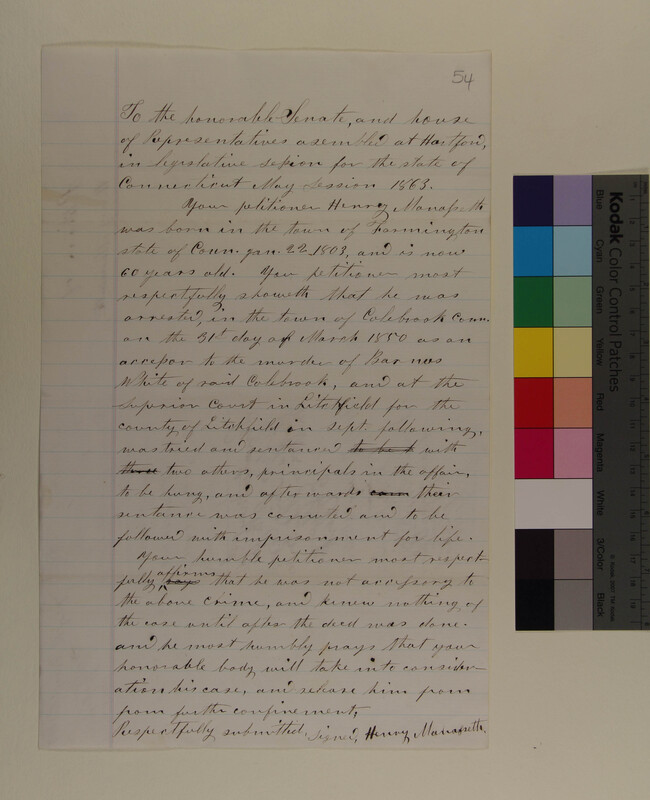 54
To the honorable Senate, and house
of Representatives asembled at Hartford,
in legislative session for the state of
Connecticut May Session 1863.
Your petitioner Henry Manassett
was born in the town of Farmington
state of Conn. jan. 22 1803, and is now
60 years old. Your petitioner most
respectfully showeth that he was
arrested, in the town of Colebrook Conn.
on the 31st day of March 1850 as an
accessor to the murder of Barnas
White of said Colebrook, and at the
Superior Court in Litchfield for the
county of Litchfield in Sept. following,
was tried and sentanced to be h with
three two others, principals in the affair,
to be hung, and afterwards their
sentance was commuted and to be
followed with imprisonment for life.
Your humble petitioner most respect-
fully say affirms that he was not accessory to
the above crime, and knew nothing of
the case until after the deed was done.
and he most humbly prays that your
honorable body will take into consider-
ation his case, and release him from
from further confinement,
Respectfully submitted. Signed, Henry Manassett.
Kodak Color Control Patches
Blue
Cyan
Green
Yellow
Red
Magenta
White
3/Color
Black